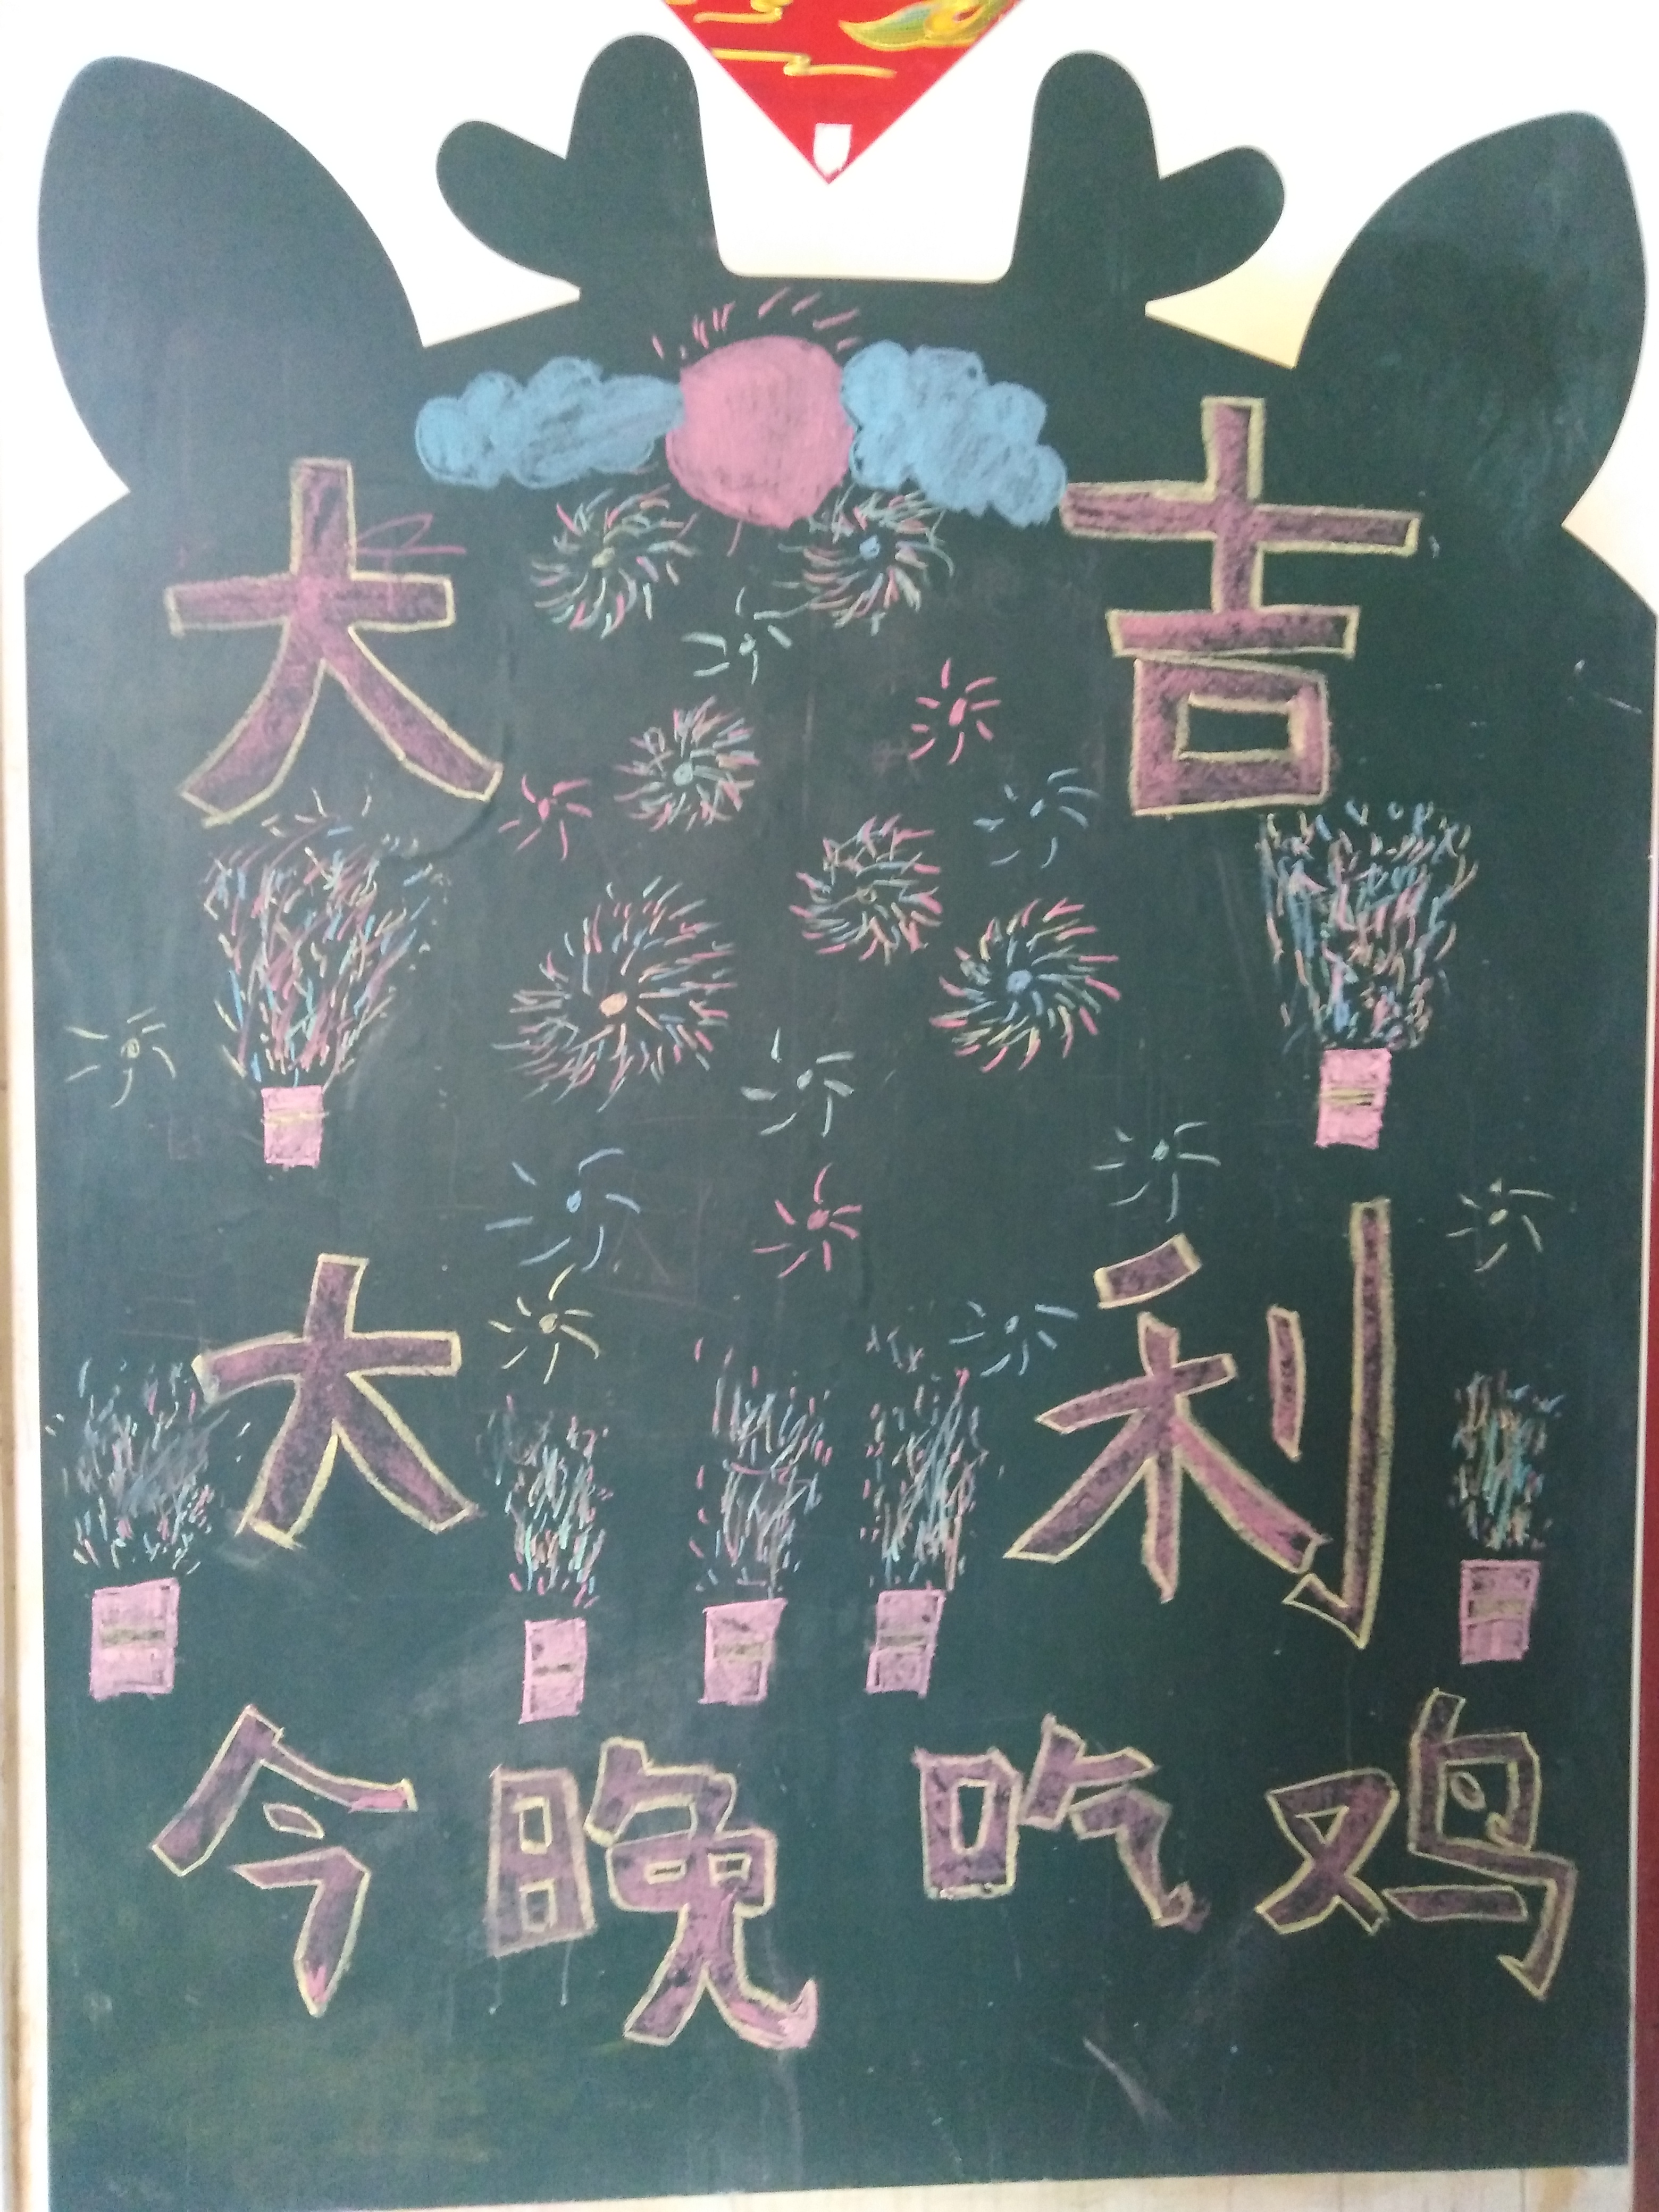 大吉
大利
今晚吃鸡